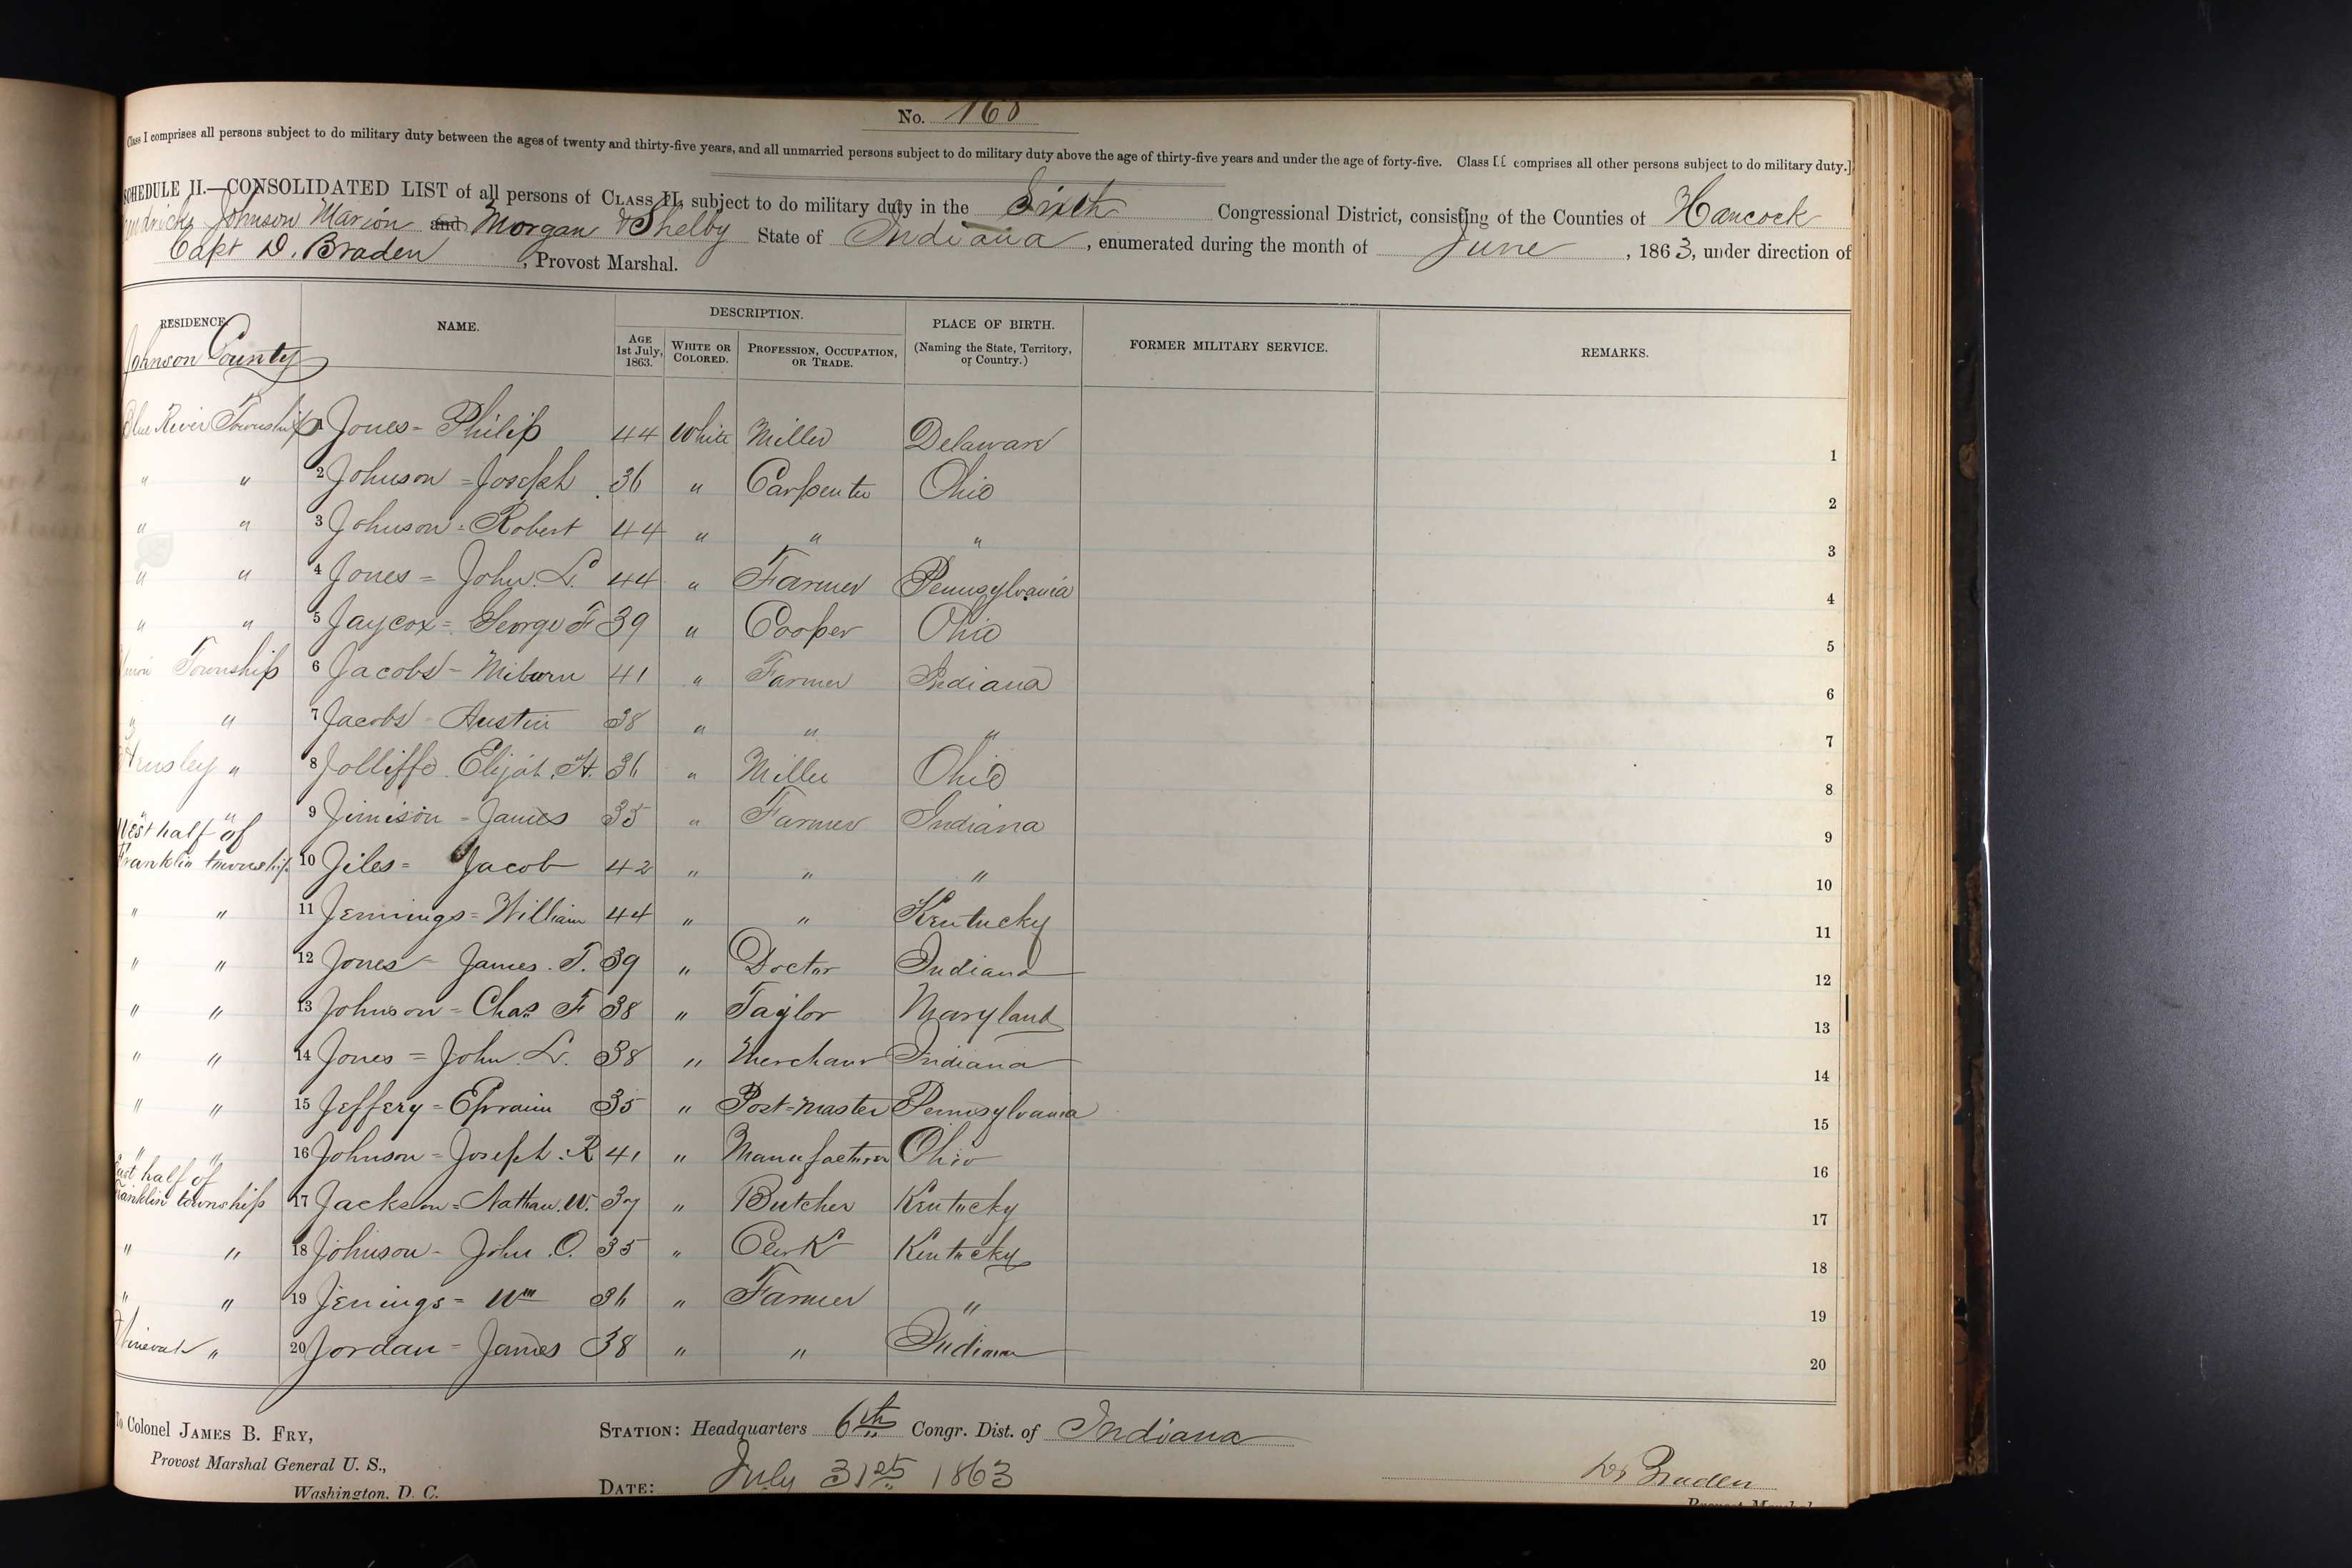 No. 160
Class I comprises all persons subject to do military duty between the ages of twenty and thirty-five years, and all unmarried persons subject to do military duty above the age of thirty-five years and under the age of forty-five. Class II comprises all other persons subject to do military duty.]
SCHEDULE II.—CONSOLIDATED LIST of all persons of CLASS II, subject to do military duty in the Sixth Congressional District, consisting of the Counties of Hancock
Hendricks Johnson Marion and Morgan & Shelby State of Indiana, enumerated during the month of June, 1863, under direction of
Capt D. Braden, Provost Marshal.
RESIDENCE. NAME. DESCRIPTION. PLACE OF BIRTH. (Naming the State, Territory, or Country.) FORMER MILITARY SERVICE. REMARKS.
AGE 1st July, 1863. WHITE OR COLORED. PROFESSION, OCCUPATION, OR TRADE.
Johnson County
Blue River Township 1 Jones = Philip 44 White Miller Delaware 1
" " 2 Johnson = Joseph 36 " Carpenter Ohio 2
" " 3 Johnson = Robert 44 " " " 3
" " 4 Jones = John. L. 44 " Farmer Pennsylvania 4
" " 5 Jaycox = George F 39 " Cooper Ohio 5
Union Township 6 Jacobs = Milburn 41 " Farmer Indiana 6
" " 7 Jacobs = Austin 38 " " " 7
Hensley " 8 Jolliffe Elijah. H. 36 " Miller Ohio 8
" " 9 Jimison = James 35 " Farmer Indiana 9
West half of
Franklin township 10 Jiles = Jacob 42 " " " 10
" " 11 Jennings = William 44 " " Kentucky 11
" " 12 Jones = James. T. 39 " Doctor Indiana 12
" " 13 Johnson = Chas F 38 " Taylor Maryland 13
" " 14 Jones = John. L. 38 " Merchant Indiana 14
" " 15 Jeffery = Epraim 35 " Post=master Pennsylvania 15
" " 16 Johnson = Joseph. R 41 " Manufacturer Ohio 16
East half of
Franklin township 17 Jackson = Nathan. W. 37 " Butcher Kentucky 17
" " 18 Johnson = John. O. 35 " Clerk Kentucky 18
" " 19 Jennings = Wm 36 " Farmer " 19
Nineveh " 20 Jordan = James 38 " " Indiana 20
To Colonel JAMES B. FRY,
Provost Marshal General U. S.,
Washington, D. C.
STATION: Headquarters 6th Congr. Dist. of Indiana
DATE: July 31st 1863
Braden
Provost Marshal